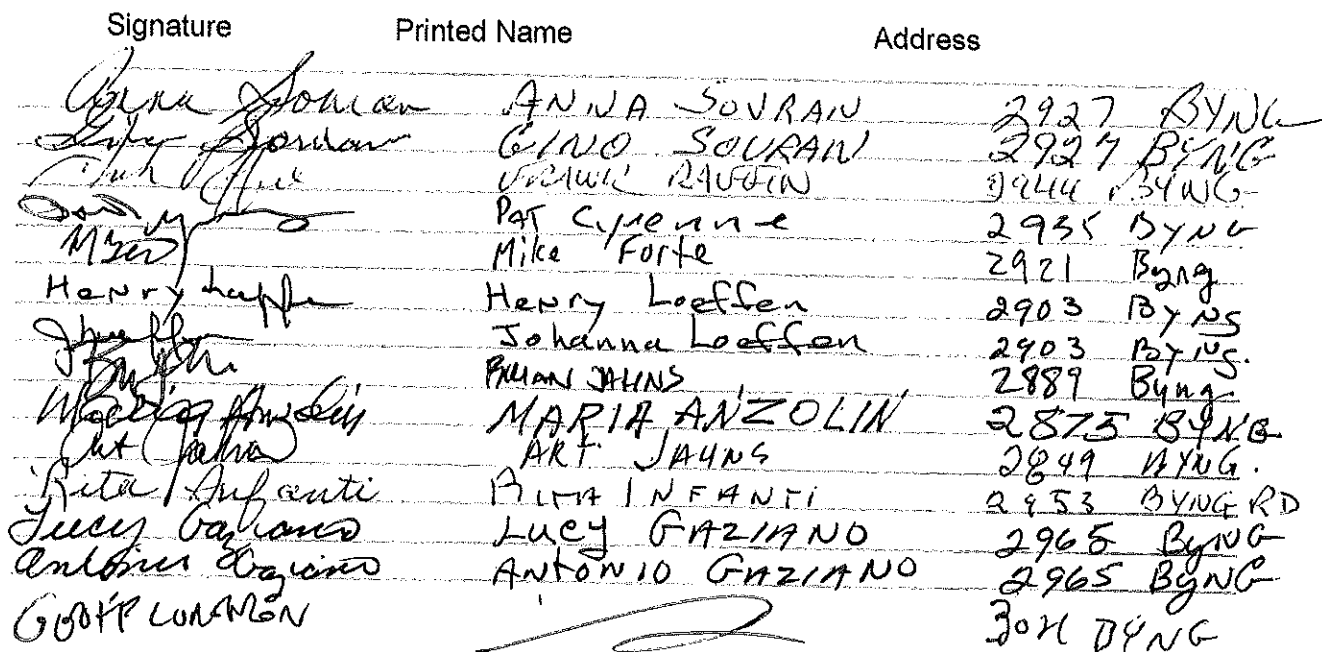 Signature Printed Name Address
Anna Sovran ANNA SOVRAN 2927 BYNG
Sovran GINO SOVRAN 2927 BYNG
2944 BYNG
PAT Cyrenne 2935 BYNG
Mike Forte 2921 Byng
Henry Loeffen Henry Loeffen 2903 BYNG
Johanna Loeffen 2903 BYNG.
JAHNS 2889 Byng
Maria Anzolin MARIA ANZOLIN 2875 BYNG
Art Jahns ART JAHNS 2849 BYNG.
Rita Infanti RITA INFANTI 2953 BYNG RD
Lucy Gaziano Lucy GAZIANO 2965 ByNG
Antonio Gaziano ANTONIO GAZIANO 2965 ByNG
BYNG